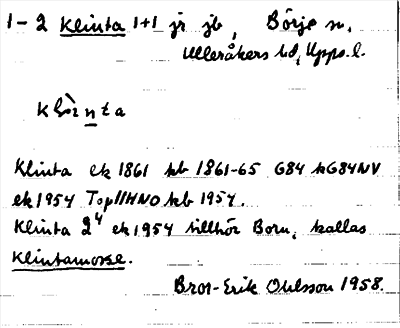 1-2 Klinta 1+1 jr jb, Börje sn,
Ulleråkers hd, Upps. l.
Klinta ek 1861 hb 1861-65 G84 hG84NV
ek 1954 Top11HNO hb 1954.
Klinta 2⁴ ek 1954 tillhör Born, kallas
Klintamosse.
Bror-Erik Ohlsson 1958.